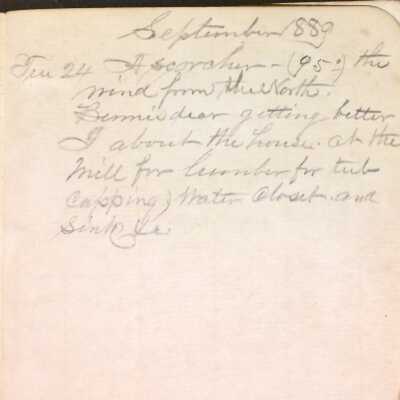 September 1889
Tue 24 A scorcher - (95°) the
wind from the North.
Bennie dear getting better
I about the house. at the
Mill for lumber for tub
capping, Water Closet. and
Sink &c.